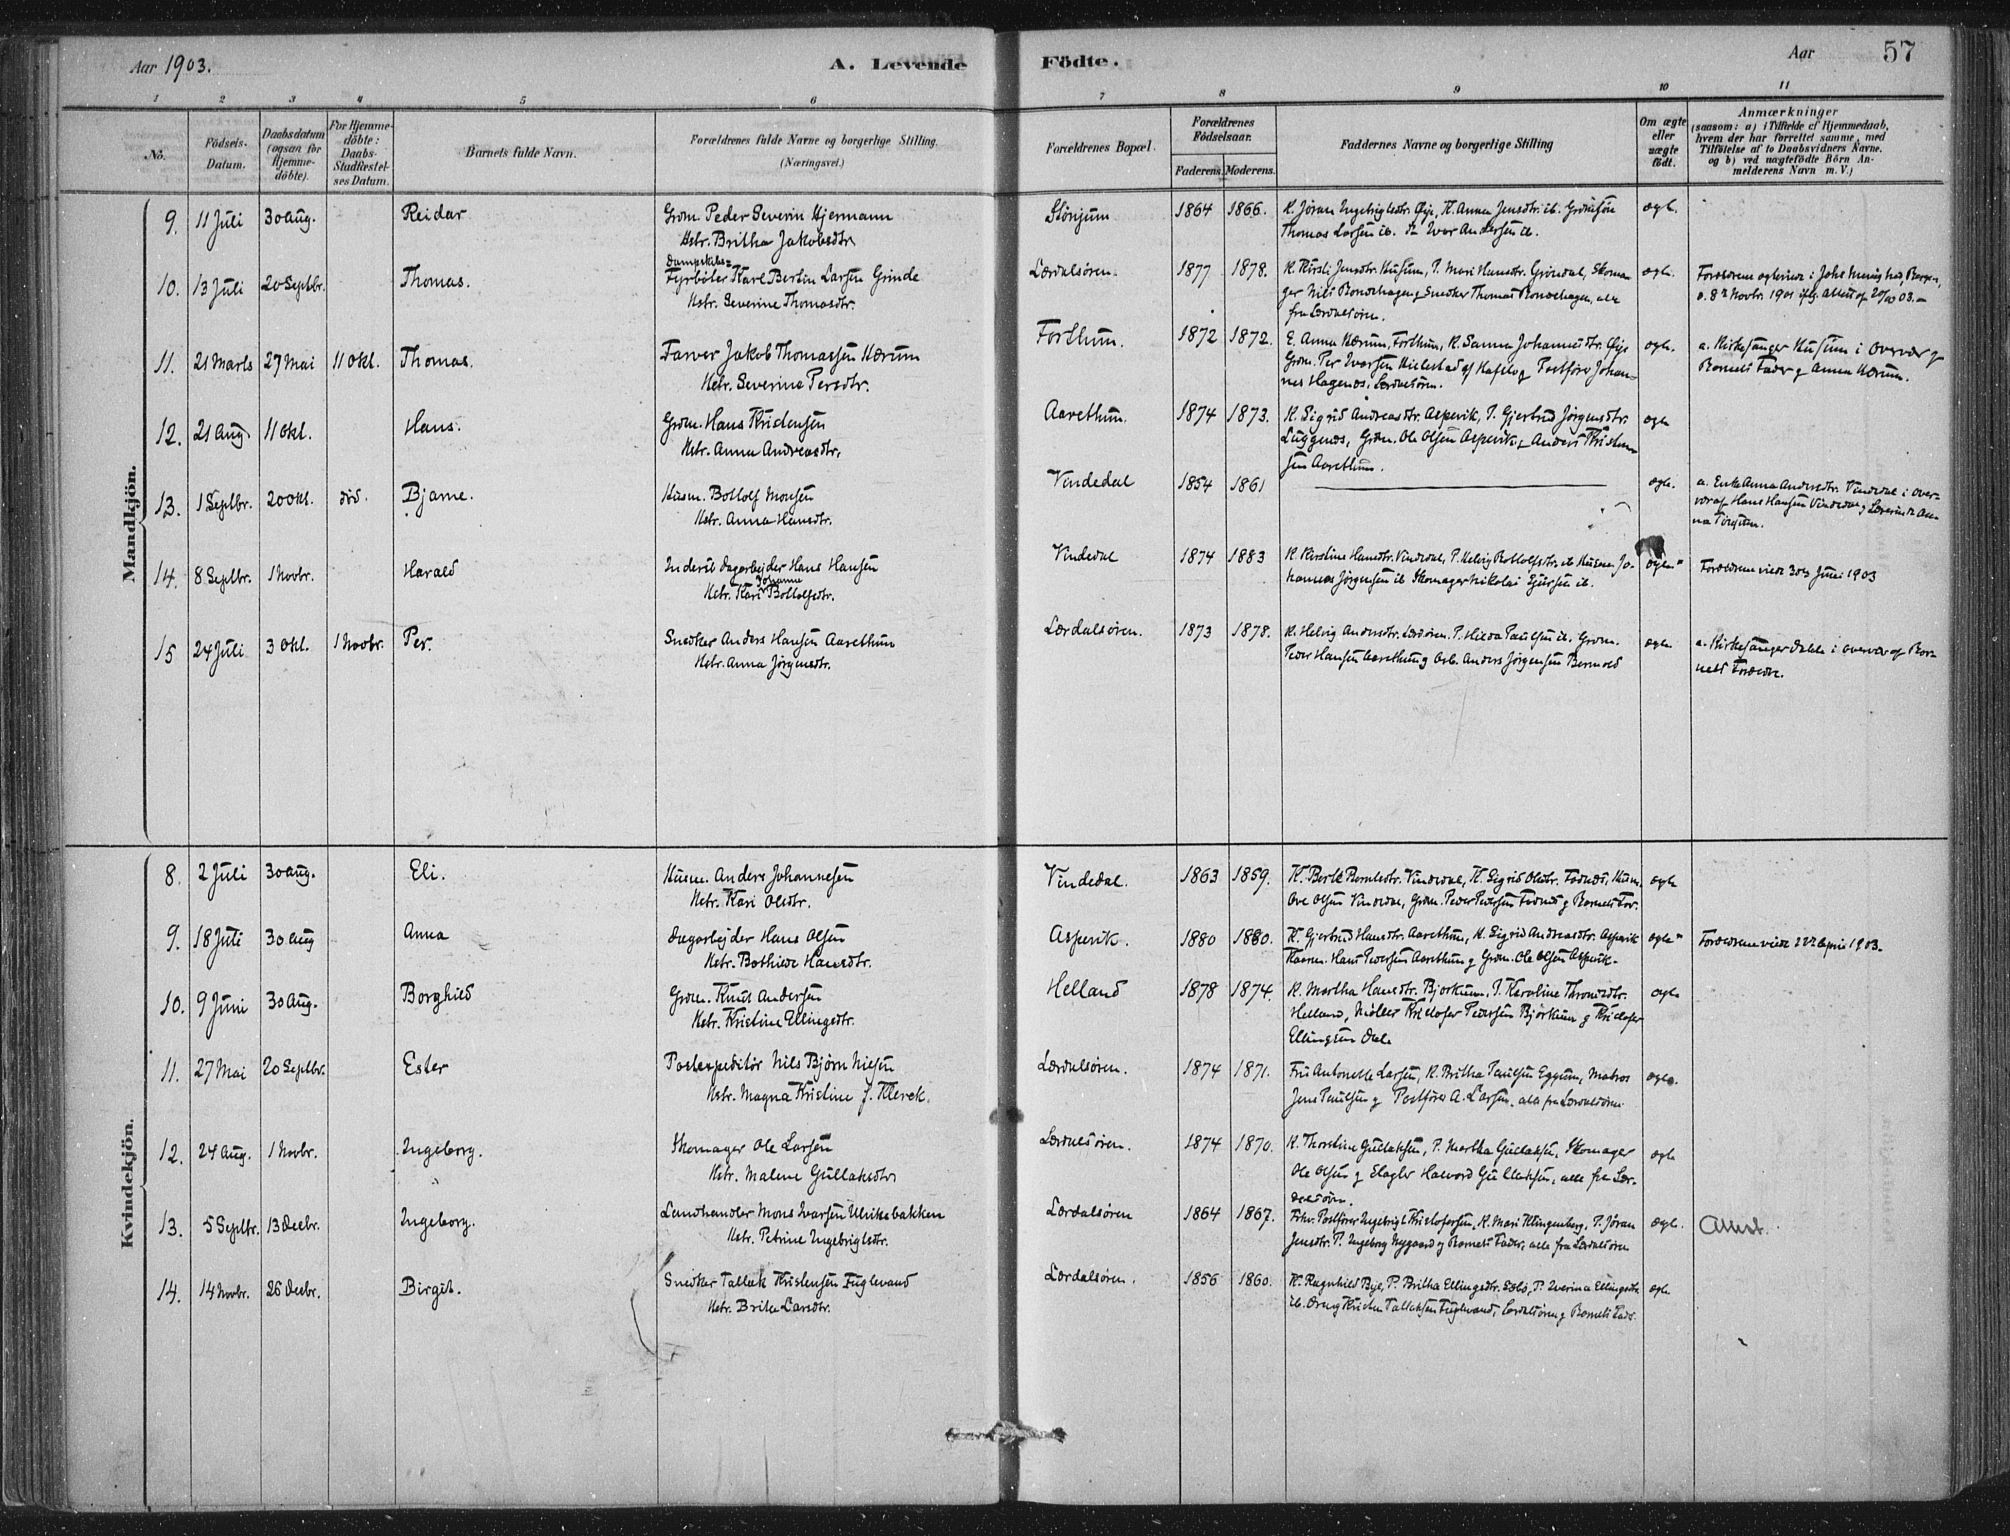 Aar 1903.
A. Levende
Födte.
Aar
57
1 2 3 4 5 6 7 8 9 10 11
No.
Födsels-
Datum.
Daabsdatum
(ogsaa for
Hjemme-
döbte).
For Hjemme-
döbte:
Daabs-
Stadfæstel-
ses Datum.
Barnets fulde Navn.
Forældrenes fulde Navne og borgerlige Stilling.
(Næringsvei.)
Forældrenes Bopæl.
Forældrenes
Födselsaar.
Faderens. Moderens.
Faddernes Navne og borgerlige Stilling
Om ægte
eller
uægte
födt.
Anmærkninger
(saasom: a) i Tilfælde af Hjemmedaab,
hvem der har forrettet samme, med
Tilföielse af to Daabsvidners Navne.
og b) ved uægtefödte Börn An-
melderens Navn m. V.)
Mandkjön.
9. 11 Juli 30 Aug. Reidar
Grdm. Peder Severin Hjermann
Hstr. Britha Jakobsdtr
Stönjum 1864 1866.
K. Jöran Ingebrigtsdtr. Öye, K. Anna Jensdtr. ib. Grdmsön
Thomas Larsen ib. & Ivar Andersen ib.
ægte.
10. 13 Juli 20 Septbr. Thomas.
Dampskibs-
Fyrböter Karl Bertin Larsen Grinde
Hstr. Severine Thomasdtr.
Lærdalsören. 1877 1878.
K. Kirsti Jensdtr. Husum, P. Mari Hansdtr. Gröndal, Skoma-
ger Nils Rondehagen & Snedker Thomas Rondehagen, alle
fra Lærdalsören.
ægte.
Forældrene ægteviede i Johs menighed, Bergen,
d. 8de Novbr. 1901 iflg. Attest af 20/10 03.-
11. 21 Marts 27 Mai 11 Okt. Thomas.
Farver Jakob Thomassen Hærum
Hstr. Severina Persdtr.
Forthun. 1872 1872.
E. Anna Hærum, Forthun, K. Sanna Johannesdtr. Öye
Grdm. Per Ivarsen Hielestad af Hafslo & Postförer Johan-
nes Hagenæs, Lærdalsören.
ægte.
a. Kirkesanger Husum i Overvær af
Barnets Fader & Anna Hærum.
12. 21 Aug 11 Okt. Hans.
Grdm. Hans Kristensen
Hstr. Anna Andreasdtr.
Aarethun. 1874 1873.
K. Sigrid Andreasdtr. Aspevik, P. Gjertrud Jörgensdtr.
Luggenæs, Grdm. Ole Olsen Aspevik, Anders Kristen-
sen Aarethun.
ægte
13. 1 Septbr. 20 Okt. död. Bjarne.
Husm. Bottolf Monsen
Hstr. Anna Hansdtr.
Vindedal 1854 1861
ægte.
a. Enke Anna Andersdtr. Vindedal i Over-
vær af Hans Hansen Vindedal & Lærerinde An-
na
14. 8 Septbr. 1 Novbr. Harald
Inderst Dagarbejder Hans Hansen
Johanna
Hstr. Kari Bottolfsdtr.
Vindedal 1874 1883
K. Kirstine Hansdtr. Vindedal, P. Helvig Bottolfsdtr. ib Husm. Jo-
hannes Jörgensen ib Skomager Nikolai Sjursen ib.
ægte"
Forældrene viede 30te Juni 1903
15 24 Juli 3 Okt. 1 Novbr. Per.
Snedker Anders Hansen Aarethun
Hstr. Anna Jörgensdtr.
Lærdalsören. 1873 1878.
K. Helvig Andersdtr. Lærdören. P. Hilda Paulsen ib. Grdm.
Peder Hansen Aarethun & Arb. Anders Jörgensen Bermold
ægte
a. Kirkesanger Dahle i overvær af Bar-
nets Forældre.
Kvindekjön.
8. 2 Juli 30 Aug. Eli.
Husm. Anders Johannesen
Hstr. Kari Olsdtr.
Vindedal. 1863 1859.
K. Berte Berntsdtr. Vindedal, K. Sigrid Olsdtr. Fodnæs, Husm.
Ole Olsen Vindedal, Grdm. Peder Pedersen Fodnæs & Barnets Far.
ægte
9. 18 Juli 30 Aug Anna
Dagarbejder Hans Olsen
Hstr. Bothilde Hansdtr.
Aspevik. 1880 1880.
K. Gjertrud Hansdtr. Aarethun, K. Sigrid Andreasdtr. Aspevik
Kaarm. Hans Pedersen Aarethun & Grdm. Ole Olsen Aspevik.
ægte"
Forældrene viede 22de April 1903.
10. 9 Juni 30 Aug. Borghild
Grdm. Knut Andersen
Hstr. Kristine Ellingsdtr.
Helland 1878 1874.
K. Martha Hansdtr. Bjorkum, P. Karoline Throndsdtr.
Helland, Möller Kristofer Pedersen Björkum & Kristofer
Ellingsen Dale
ægte
11. 27 Mai 20 Septbr. Ester
Postexpeditör Nils Björn Nilsen
Hstr. Magna Kristine f. Klerck.
Lærdalsören. 1874 1871.
Fru Antonette Larsen, K. Britha Paulsen Eggum, Matros
Jens Paulsen & Postförer A. Larsen, alle fra Lærdalsören
ægte.
12. 24 Aug. 1 Novbr. Ingeborg.
Skomager Ole Larsen
Hstr. Malene Gullaksdtr
Lærdalsören. 1874 1870.
K. Thorstine Gullaksen, P. Martha Gullaksen, Skomager
Ole Olsen & Slagter Halvord Gullaksen, alle fra Lær-
dalsören.
ægte
13. 5 Septbr. 13 Decbr. Ingeborg.
Landhandler Mons Ivarsen Ulriksbakken
Hstr. Petrine Ingebrigtsdtr.
Lærdalsören 1864 1867.
Fhv. Postförer Ingebrigt Kristofersen, K. Mari Klingenberg, P. Jöran
Jensdtr. P. Ingeborg Nygaard & Barnets Fader, alle fra Lærdalsören
ægte.
Attest.
14. 14 Novbr. 26 Decbr. Birgit.
Snedker Tallak Kristensen Fuglevand
Hstr. Brita Larsdtr.
Lærdalsören. 1856 1860.
K. Ragnhild Bye, P. Britha Ellingsdtr. P. Iverina Ellingsdtr
ib. Dreng Kristen Tallaksen Fuglevand, Lærdalsören & Barnets Fader.
ægte